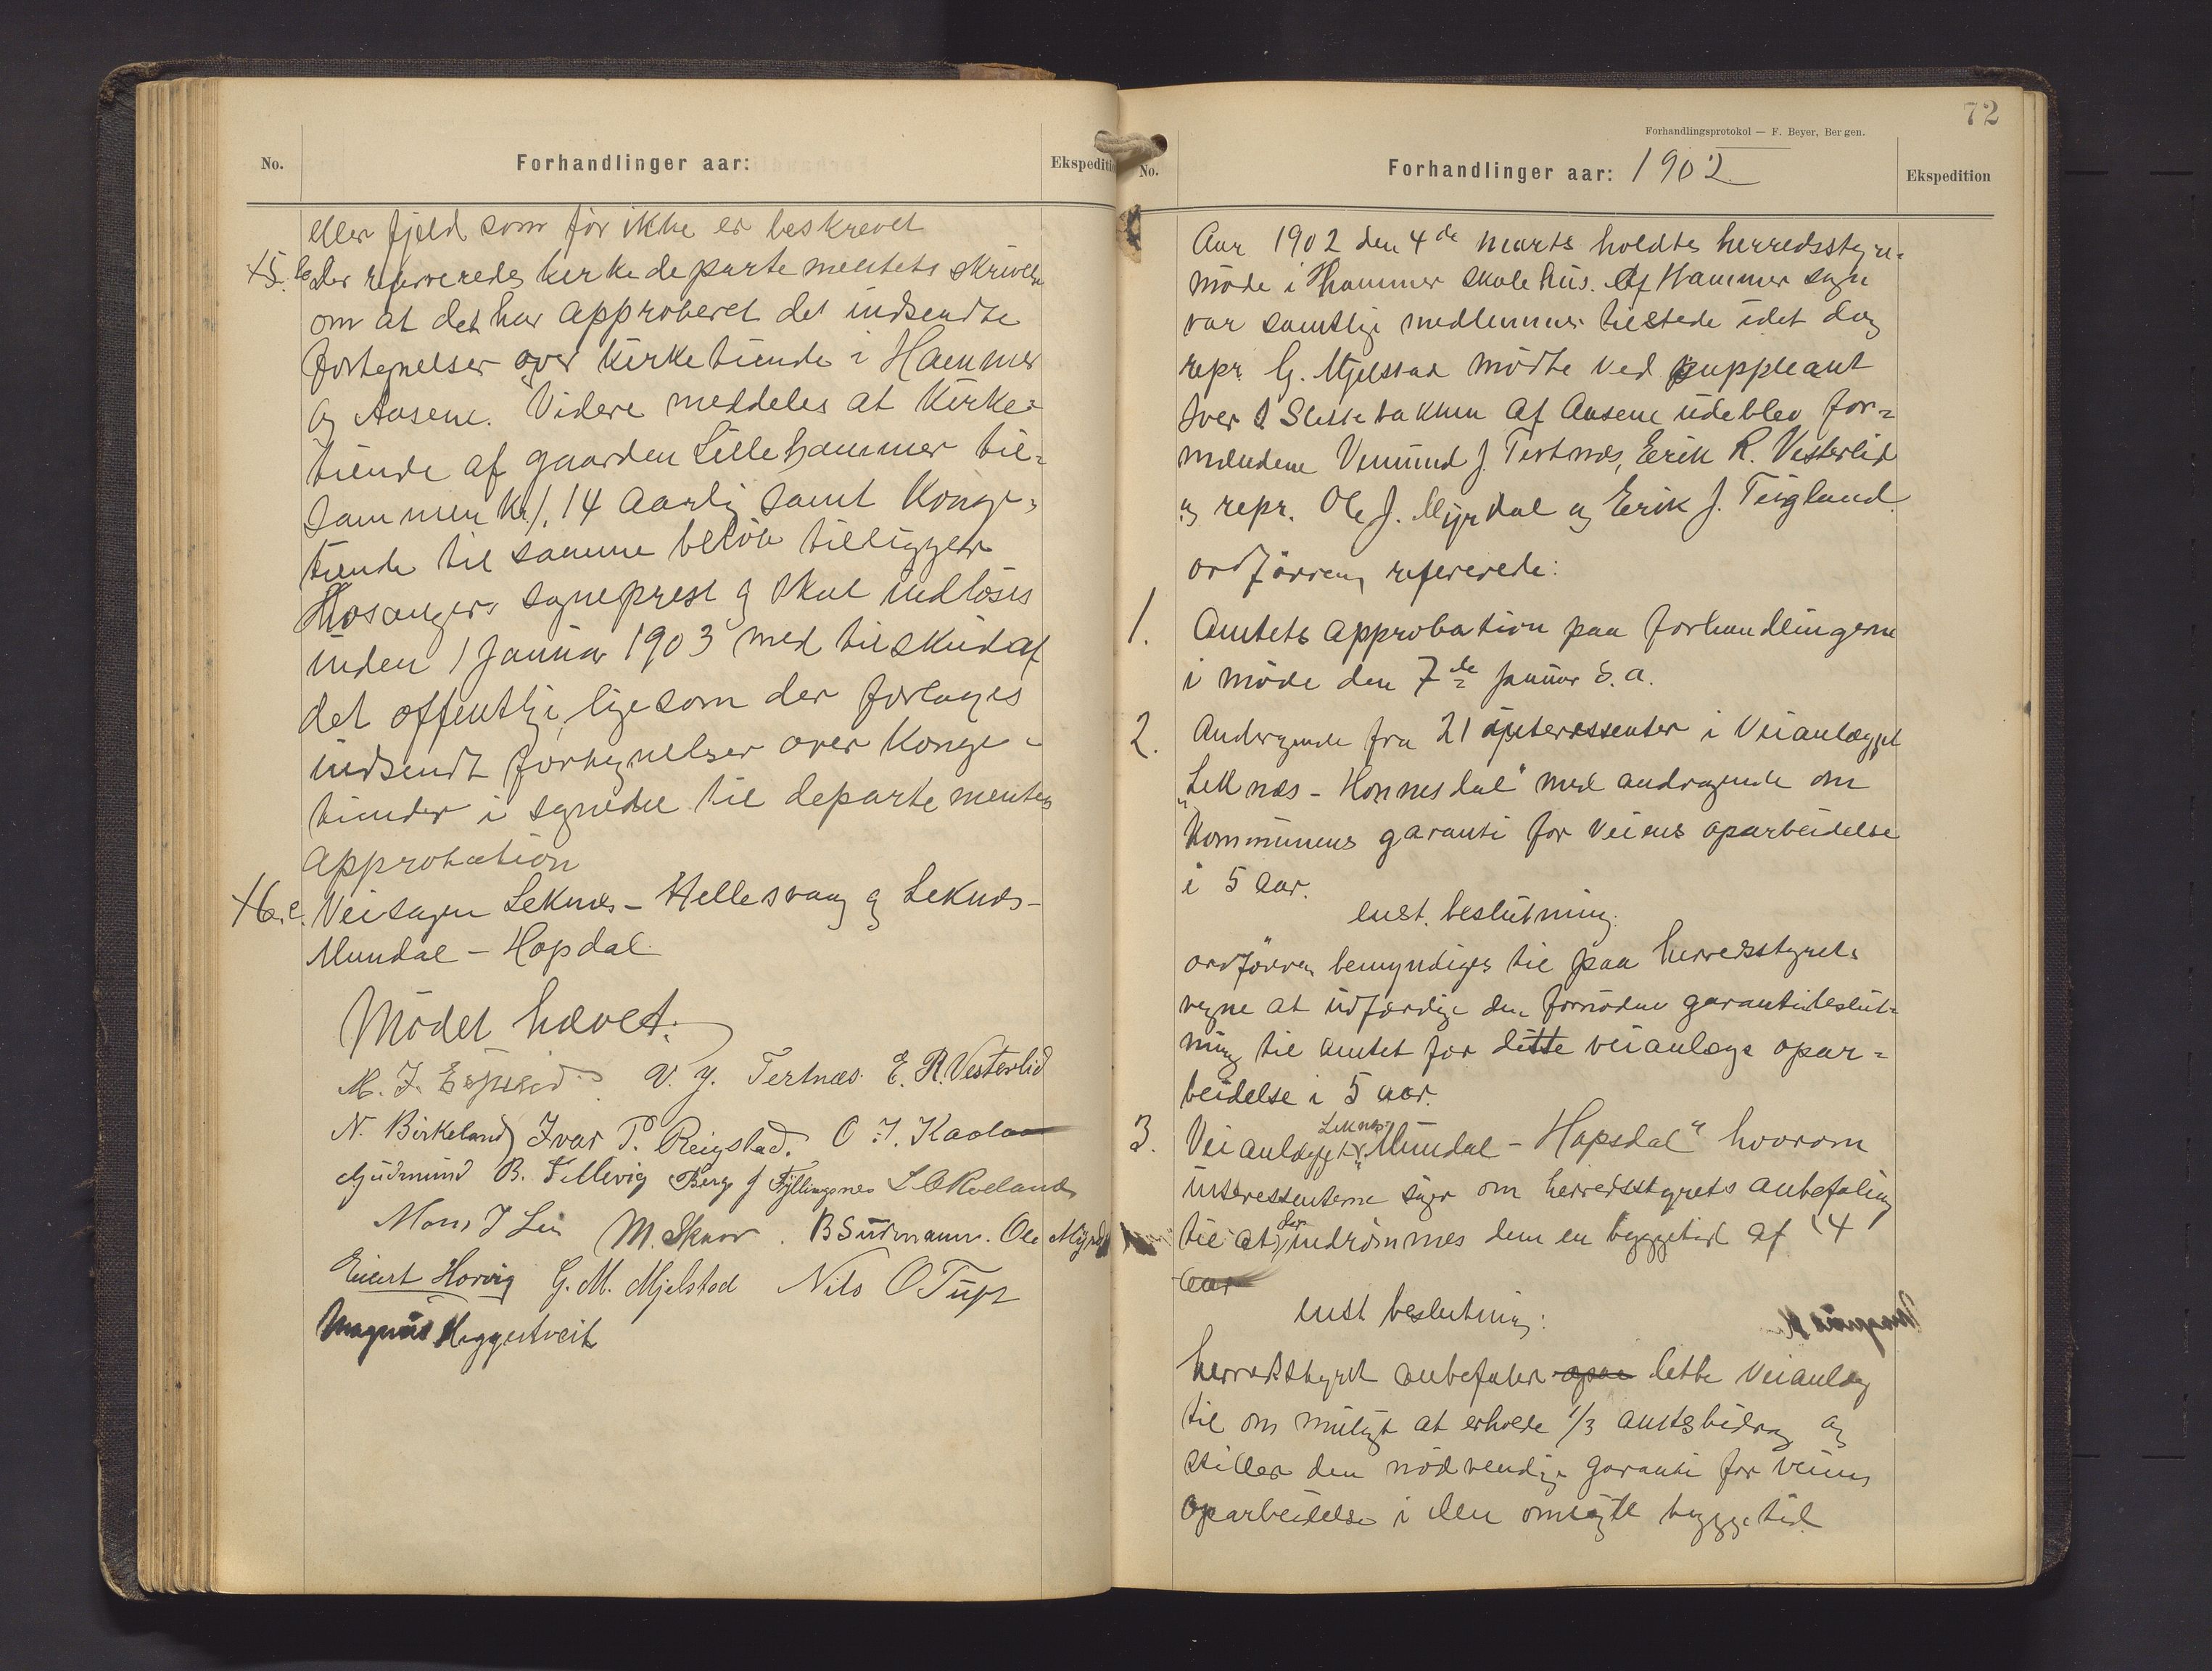 No. Forhandlinger aar: Ekspediti
eller fjeld som før ikke er beskrevet
15. b. Der refereredes kirkedepartementets skrivelse
om at det har approberet det indsendte
fortegnelser over kirketiende i Hammer
og Aasene. Videre meddeles at kirke=
tiende af gaarden Lillehammer til=
sammen kr 1,14 aarlig samt Konge=
tiende til samme beløb tilligger
Hosangers sogneprest og skal indløses
inden 1 Januar 1903 med tilskud af
det offentlige, ligesom der forlanges
indsendt fortegnelser over Konge-
tiender i sognene til departementes
approbation
16. c. Veisagen Leknes - Hellesvaag og Leknes-
Mundal - Hopdal.
Mödet hævet.
M. J. Espelid. V. J. Tertnæs. E. R. Vesterlid
N. Birkeland Ivar P. Reigstad. O. J. Kaala
Gudmund B. Fellevig Berge J Fyllingsnes L O Roeland
Mons J Lei M. Skaar. B Sudmann. Ole Myrdal
Eilert Horvig G. M. Mjelstad Nils O Tupt
Magnus Heggertveit
72
Forhandlingsprotokol — F. Beyer, Bergen.
No. Forhandlinger aar: 1902 Ekspedition
Aar 1902 den 4de marts holdtes herredsstyre=
möde i Hammer skolehus. Af Hammer sogn
var samtlige medlemmer tilstede idet dog
repr. G. Mjelstad mödte ved suppleant
Iver J Slettebakken af Aasene udeblev for=
mændene Vemund J. Tertnæs, Erik R. Vesterlid
og repr. Ole J. Myrdal og Erik J. Teigland.
ordföreren refererede:
1. Amtets approbation paa forhandlingerne
i möde den 7de januar d. a.
2. Andragende fra 21 interessenter i Veianlægget
"Leknæs - Honnesdal" med andragende om
kommunens garanti for veiens oparbeidelse
i 5 aar.
enst. beslutning.
ordföreren bemyndiges til paa herredsstyrets
vegne at udfærdige den fornødne garantibeslut=
ning til amtet for dette veianlægs opar=
beidelse i 5 aar.
3. Veianlægget "Leknes Mundal - Hopsdal" hvorom
interessenterne söger om herredsstyrets anbefaling
til at der indrömmes dem en byggetid af 4
aar
enst beslutning:
herredsstyret anbefaler dette veianlæg
til om muligt at erholde 1/3 amtsbidrag og
stiller den nödvendige garanti for veiens
oparbeidelse i den omsögte byggetid